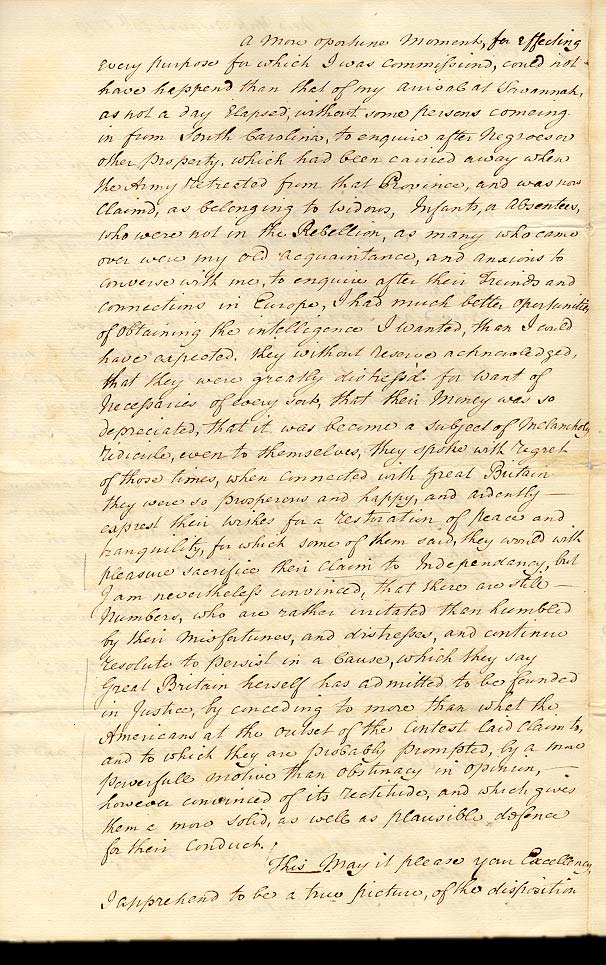 A more oportune Moment, for Effecting
every purpose for which I was commissiond, could not
have happend than that of my arrival at Savannah,
as not a day Elapsed, without some persons comeing
in from South Carolina, to enquire after Negroes or
other Property, which had been carried away when
the Army retreated from that Province, and was now
Claimd, as belonging to Widows, Infants, or Absentees,
who were not in the Rebellion, as many who came
over were my old acquaintance, and anxious to
converse with me, to enquire after their Freinds and
connections in Europe, I had much better oportunities
of Obtaining the intelligence I wanted, than I could
have expected, they without reserve acknowledged,
that they were greatly distress'd for want of
Necessaries of every sort, that their Money was so
depreciated, that it was become a subject of Melancholy
ridicule, even to themselves, they spoke with regret
of those times, when connected with Great Britain
they were so prosperous and happy, and ardently —
exprest their wishes for a restoration of peace and
tranquility, for which some of them said, they would with
pleasure sacrifice their Claim to Independancy, but
I am nevertheless convinced, that there are still —
Numbers, who are rather irritated than humbled
by their Misfortunes, and distresses, and continue
resolute to persist in a Cause, which they say
Great Britain herself has admitted to be founded
in Justice, by conceding to more than whet the
Americans at the outset of the Contest laid Claim to,
and to which they are probably prompted, by a more
powerfull motive than obstinacy in opinion, —
however convinced of its rectitude, and which gives
them a more solid, as well as plausible defence
for their Conduct.
This May it please your Excellency,
I apprehend to be a true picture, of the disposition